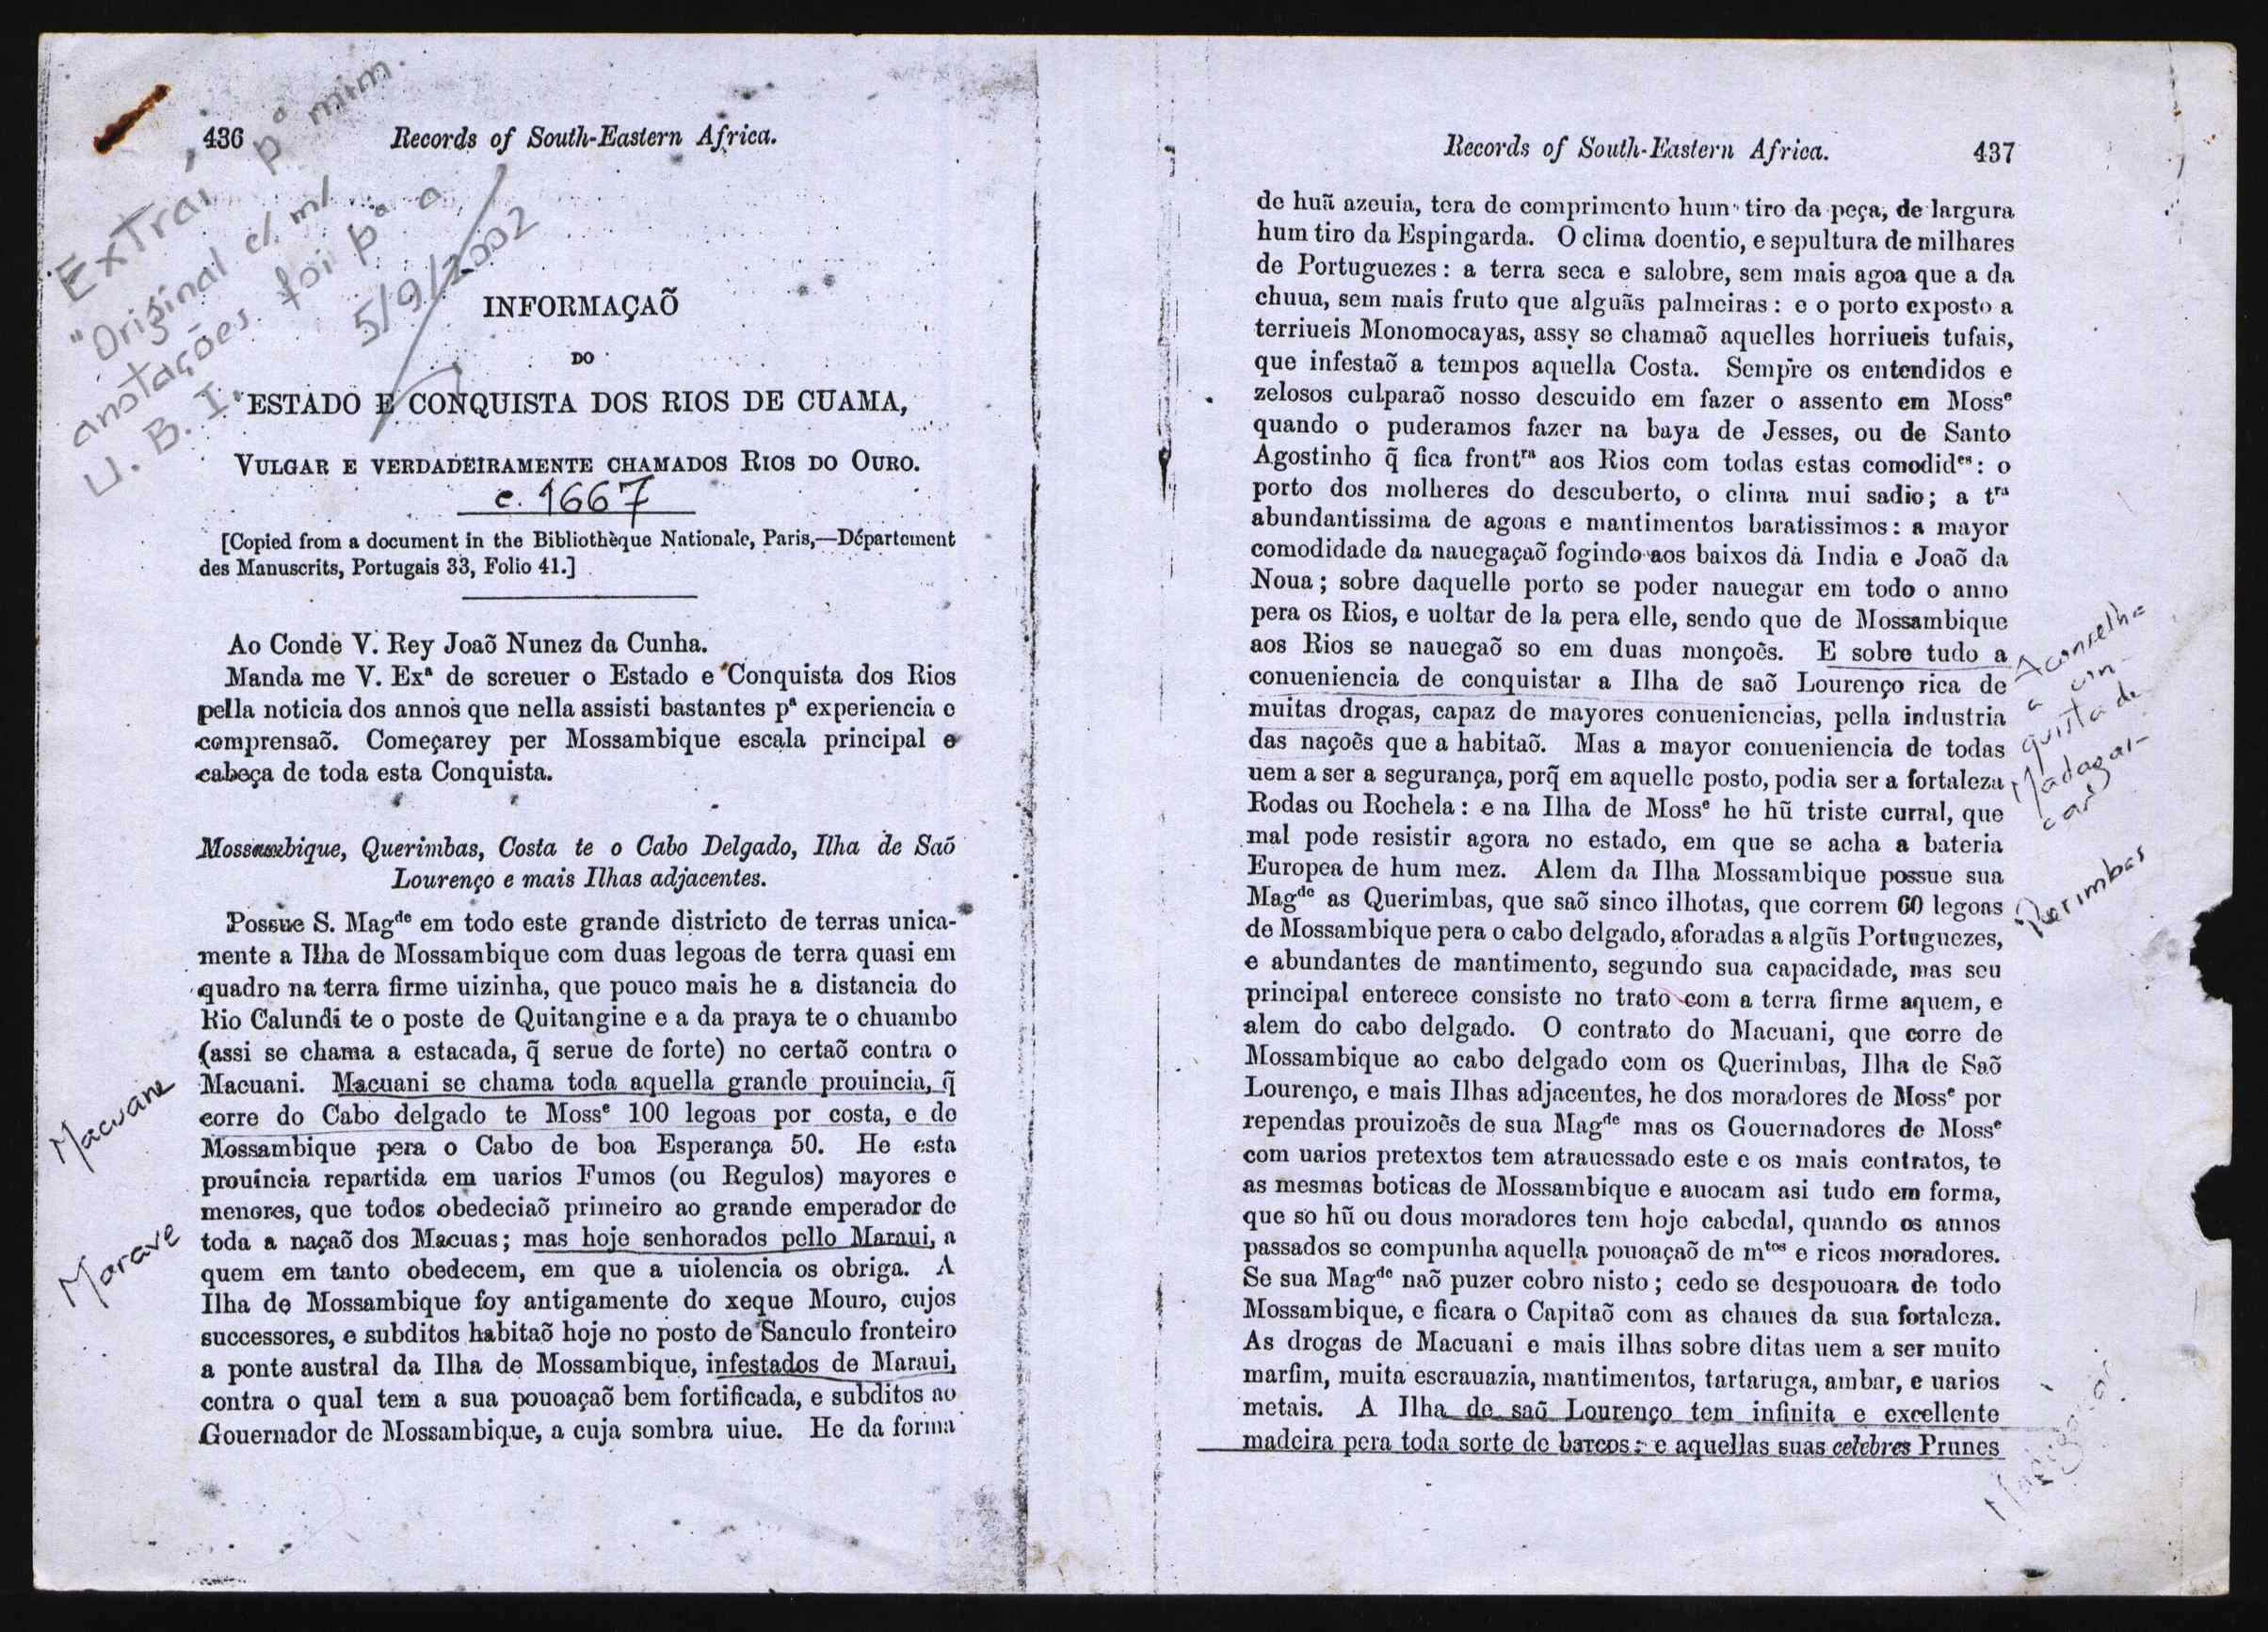 Extraí pª mim.
"Original c/ m/
anotações foi pª a
U. B. I.
5/9/2002
436 Records of South-Eastern Africa.
INFORMAÇAÕ
DO
ESTADO E CONQUISTA DOS RIOS DE CUAMA,
VULGAR E VERDADEIRAMENTE CHAMADOS RIOS DO OURO.
c. 1667
[Copied from a document in the Bibliothèque Nationale, Paris,—Département
des Manuscrits, Portugais 33, Folio 41.]
Ao Conde V. Rey Joaõ Nunez da Cunha.
Manda me V. Exª de screuer o Estado e Conquista dos Rios
pella noticia dos annos que nella assisti bastantes pª experiencia e
comprensaõ. Começarey per Mossambique escala principal e
cabeça de toda esta Conquista.
Mossambique, Querimbas, Costa te o Cabo Delgado, Ilha de Saõ
Lourenço e mais Ilhas adjacentes.
Possue S. Magᵈᵉ em todo este grande districto de terras unica-
mente a Ilha de Mossambique com duas legoas de terra quasi em
quadro na terra firme uizinha, que pouco mais he a distancia do
Rio Calundi te o poste de Quitangine e a da praya te o chuambo
(assi se chama a estacada, q̃ serue de forte) no certaõ contra o
Macuani. Macuani se chama toda aquella grande prouincia, q̃
corre do Cabo delgado te Mossᵉ 100 legoas por costa, e de
Mossambique pera o Cabo de boa Esperança 50. He esta
prouincia repartida em uarios Fumos (ou Regulos) mayores e
menores, que todos obedeciaõ primeiro ao grande emperador de
toda a naçaõ dos Macuas; mas hoje senhorados pello Maraui, a
quem em tanto obedecem, em que a uiolencia os obriga. A
Ilha de Mossambique foy antigamente do xeque Mouro, cujos
successores, e subditos habitaõ hoje no posto de Sanculo fronteiro
a ponte austral da Ilha de Mossambique, infestados de Maraui,
contra o qual tem a sua pouoaçaõ bem fortificada, e subditos ao
Gouernador de Mossambique, a cuja sombra uiue. He da forma
Macuane
Marave
Records of South-Eastern Africa. 437
de huã azeuia, tera de comprimento hum tiro da peça, de largura
hum tiro da Espingarda. O clima doentio, e sepultura de milhares
de Portuguezes: a terra seca e salobre, sem mais agoa que a da
chuua, sem mais fruto que alguãs palmeiras: e o porto exposto a
terriueis Monomocayas, assy se chamaõ aquelles horriueis tufais,
que infestaõ a tempos aquella Costa. Sempre os entendidos e
zelosos culparaõ nosso descuido em fazer o assento em Mossᵉ
quando o puderamos fazer na baya de Jesses, ou de Santo
Agostinho q̃ fica frontʳᵃ aos Rios com todas estas comodidᵉˢ: o
porto dos molheres do descuberto, o clima mui sadio; a tʳᵃ
abundantissima de agoas e mantimentos baratissimos: a mayor
comodidade da nauegaçaõ fogindo aos baixos da India e Joaõ da
Noua; sobre daquelle porto se poder nauegar em todo o anno
pera os Rios, e uoltar de la pera elle, sendo que de Mossambique
aos Rios se nauegaõ so em duas monçoẽs. E sobre tudo a
conueniencia de conquistar a Ilha de saõ Lourenço rica de
muitas drogas, capaz de mayores conueniencias, pella industria
das naçoẽs que a habitaõ. Mas a mayor conueniencia de todas
uem a ser a segurança, porq̃ em aquelle posto, podia ser a fortaleza
Rodas ou Rochela: e na Ilha de Mossᵉ he hũ triste curral, que
mal pode resistir agora no estado, em que se acha a bateria
Europea de hum mez. Alem da Ilha Mossambique possue sua
Magᵈᵉ as Querimbas, que saõ sinco ilhotas, que correm 60 legoas
de Mossambique pera o cabo delgado, aforadas a algũs Portuguezes,
e abundantes de mantimento, segundo sua capacidade, mas seu
principal enterece consiste no trato com a terra firme aquem, e
alem do cabo delgado. O contrato do Macuani, que corre de
Mossambique ao cabo delgado com os Querimbas, Ilha de Saõ
Lourenço, e mais Ilhas adjacentes, he dos moradores de Mossᵉ por
rependas prouizoẽs de sua Magᵈᵉ mas os Gouernadores de Mossᵉ
com uarios pretextos tem atrauessado este e os mais contratos, te
as mesmas boticas de Mossambique e auocam asi tudo em forma,
que so hũ ou dous moradores tem hoje cabedal, quando os annos
passados se compunha aquella pouoaçaõ de mᵗᵒˢ e ricos moradores.
Se sua Magᵈᵉ naõ puzer cobro nisto; cedo se despouoara de todo
Mossambique, e ficara o Capitaõ com as chaues da sua fortaleza.
As drogas de Macuani e mais ilhas sobre ditas uem a ser muito
marfim, muita escrauazia, mantimentos, tartaruga, ambar, e uarios
metais. A Ilha de saõ Lourenço tem infinita e excellente
madeira pera toda sorte de barcos: e aquellas suas celebres Prunes
Aconselha
a con-
quista de
Madagas-
car
Querimbas
Madagascar